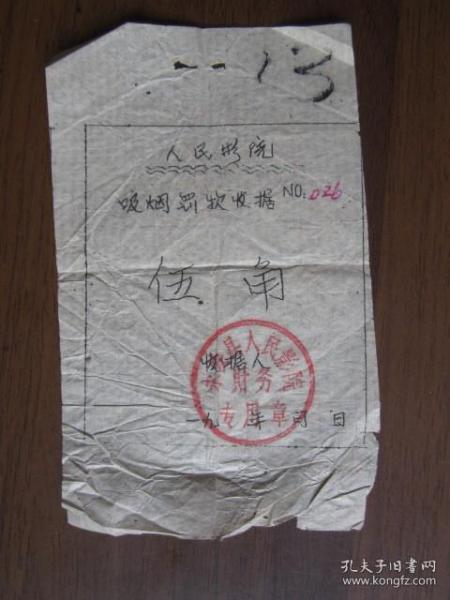 人民影院
吸烟罚款收据 NO: 026
伍角
收据人
县人民影院
财务
专用章
一九 年 月 日
孔夫子旧书网
www.kongfz.com